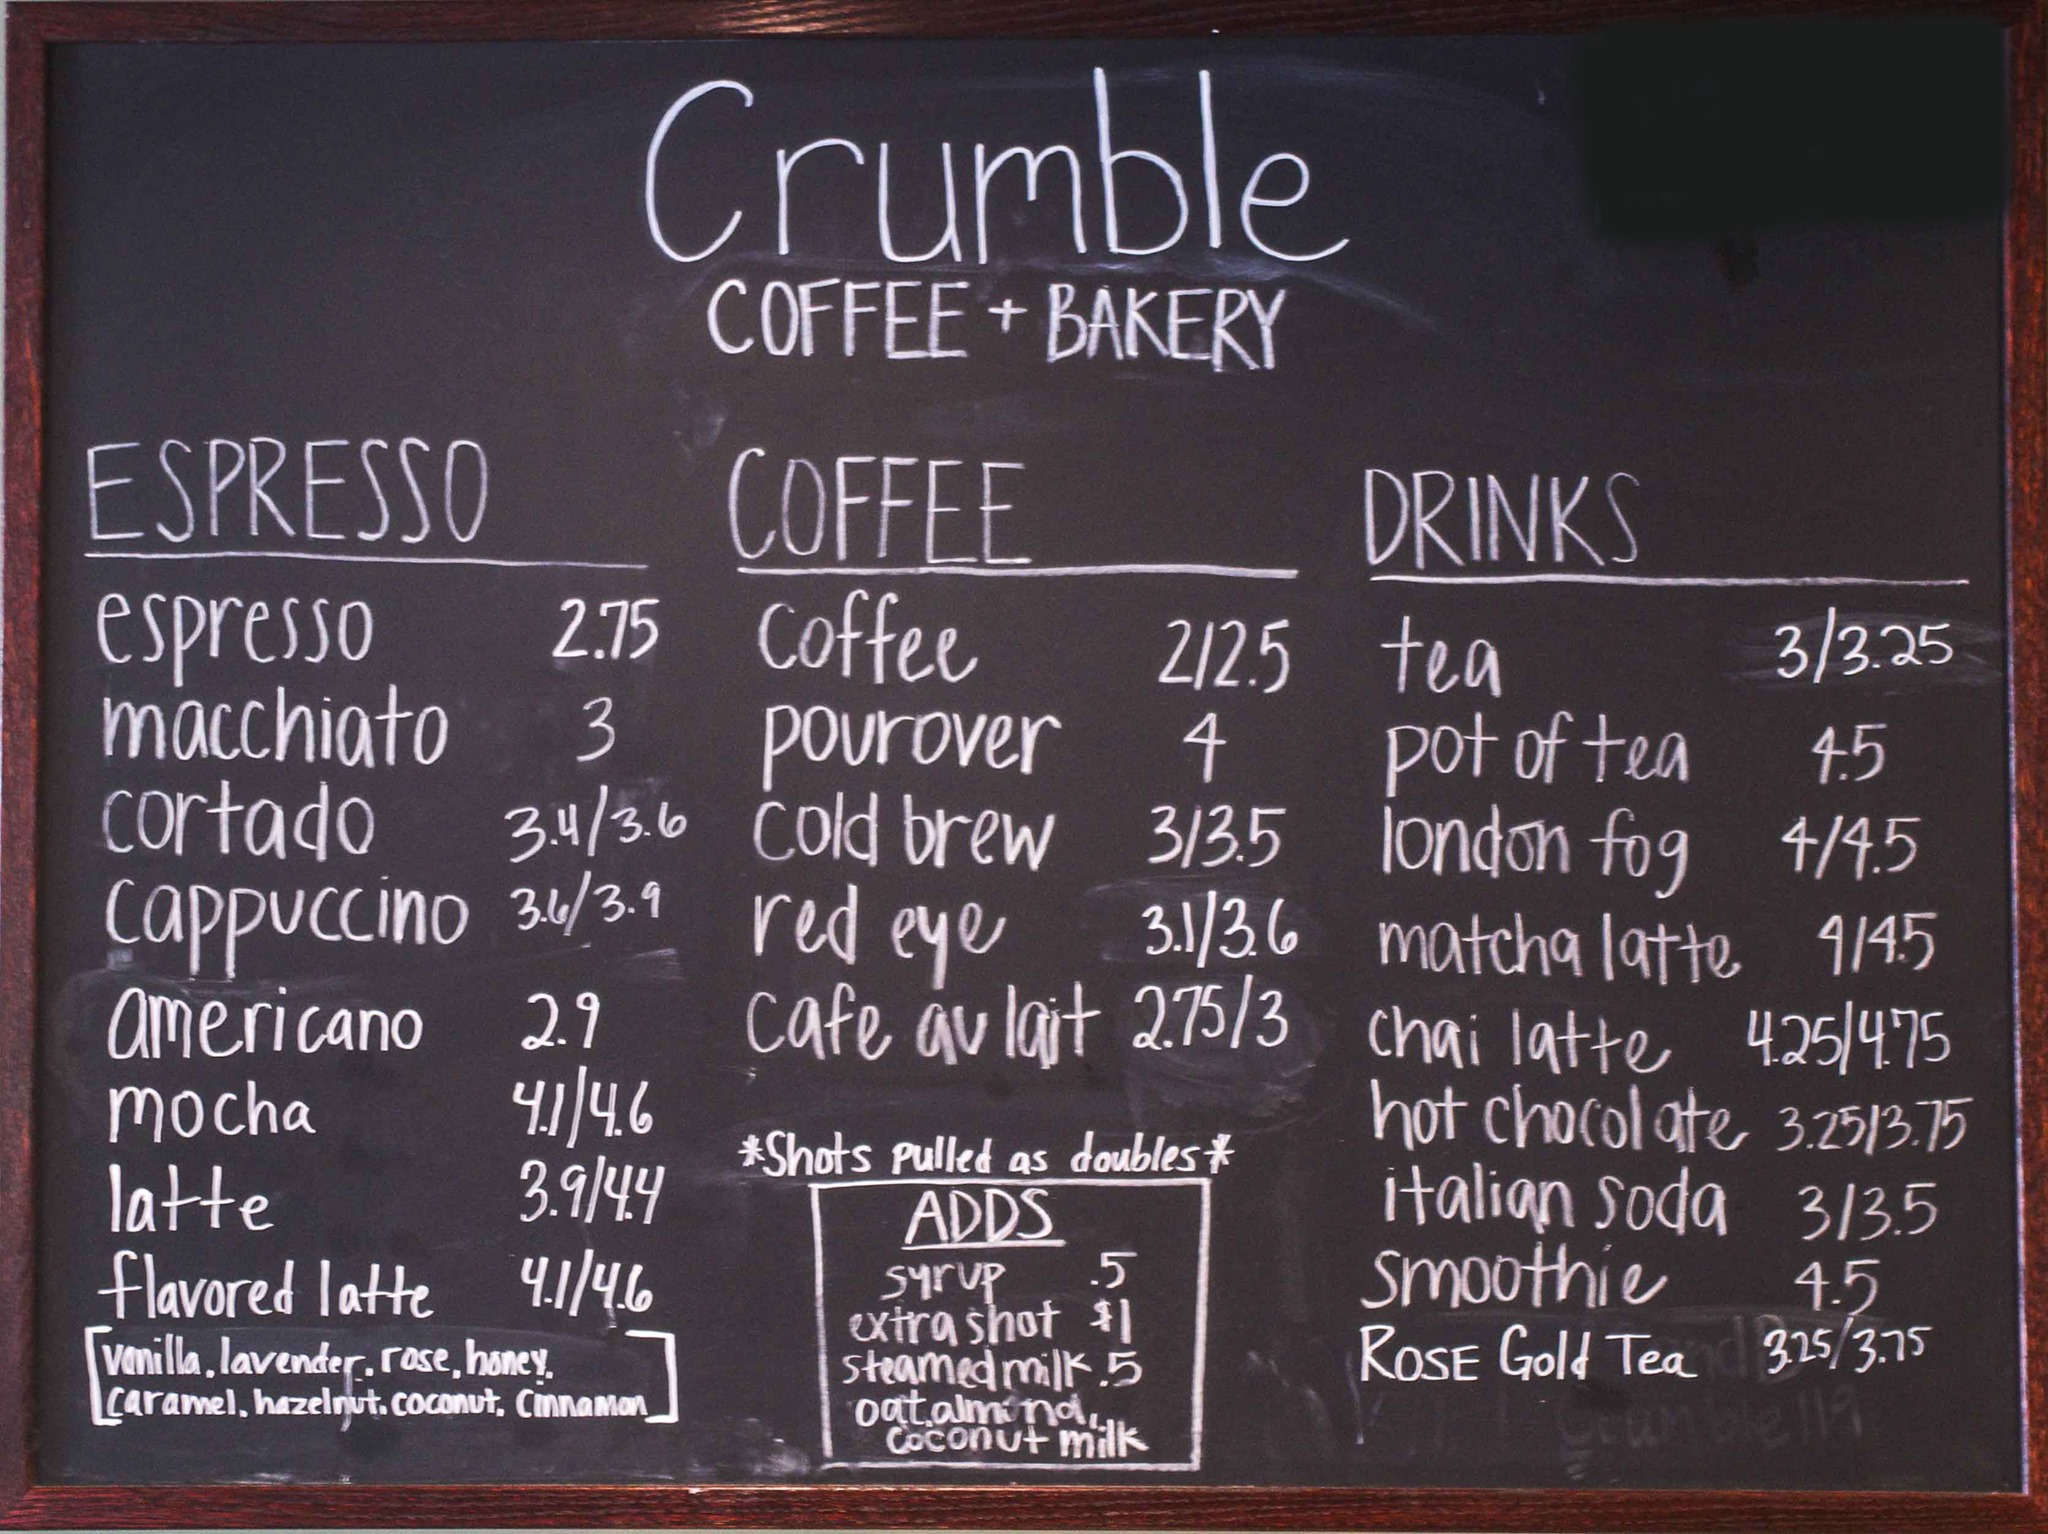 Crumble
COFFEE + BAKERY
ESPRESSO
espresso 2.75
macchiato 3
cortado 3.4/3.6
cappuccino 3.6/3.9
americano 2.9
mocha 4.1/4.6
latte 3.9/4.4
flavored latte 4.1/4.6
[vanilla, lavender, rose, honey,
caramel, hazelnut, coconut, cinnamon]
COFFEE
coffee 2/2.5
pourover 4
cold brew 3/3.5
red eye 3.1/3.6
cafe au lait 2.75/3
*Shots pulled as doubles*
ADDS
syrup .5
extra shot $1
steamed milk .5
oat, almond,
coconut milk
DRINKS
tea 3/3.25
pot of tea 4.5
london fog 4/4.5
matcha latte 4/4.5
chai latte 4.25/4.75
hot chocolate 3.25/3.75
italian soda 3/3.5
smoothie 4.5
ROSE Gold Tea 3.25/3.75
Crumble119